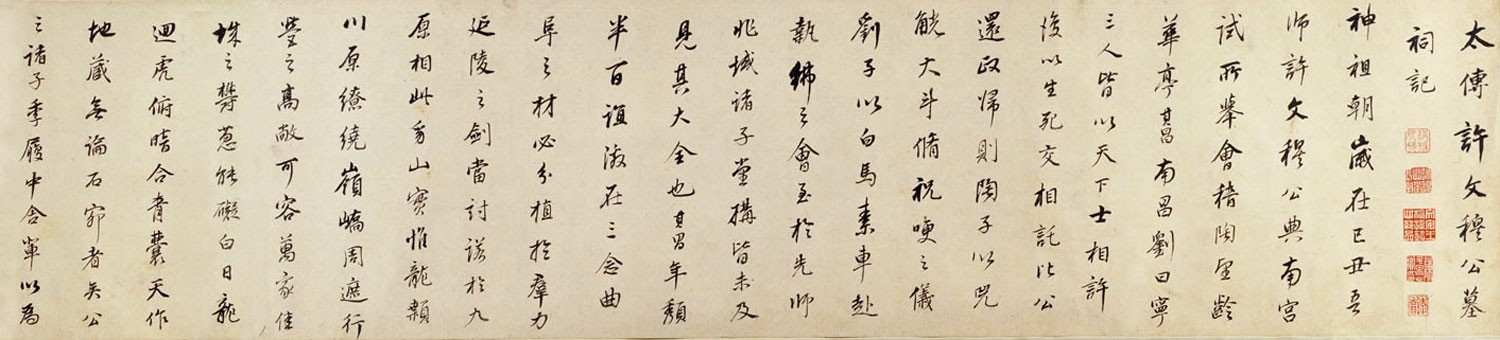 太傅許文穆公墓
祠記
神祖朝歲在己丑吾
師許文穆公典南宮
試所舉會稽陶望齡
華亭其昌南昌劉曰寧
三人皆以天下士相許
後以生死交相託比公
還政歸則陶子以兕
觥大斗脩祝哽之儀
劉子以白馬素車赴
執紼之會至於先師
兆域諸子堂構皆未及
見其大全也其昌年頹
半百誼激在三念曲
阜之材必分植於羣力
延陵之劍當討諾於九
原相此身山實惟龍顙
川原繚繞嶺嶠周遮行
塋之高敞可容萬家佳
城之鬱蔥能礙白日龍
迴虎俯暗合青囊天作
地藏無論石窌者矣公
之諸子季履中舍軍以為